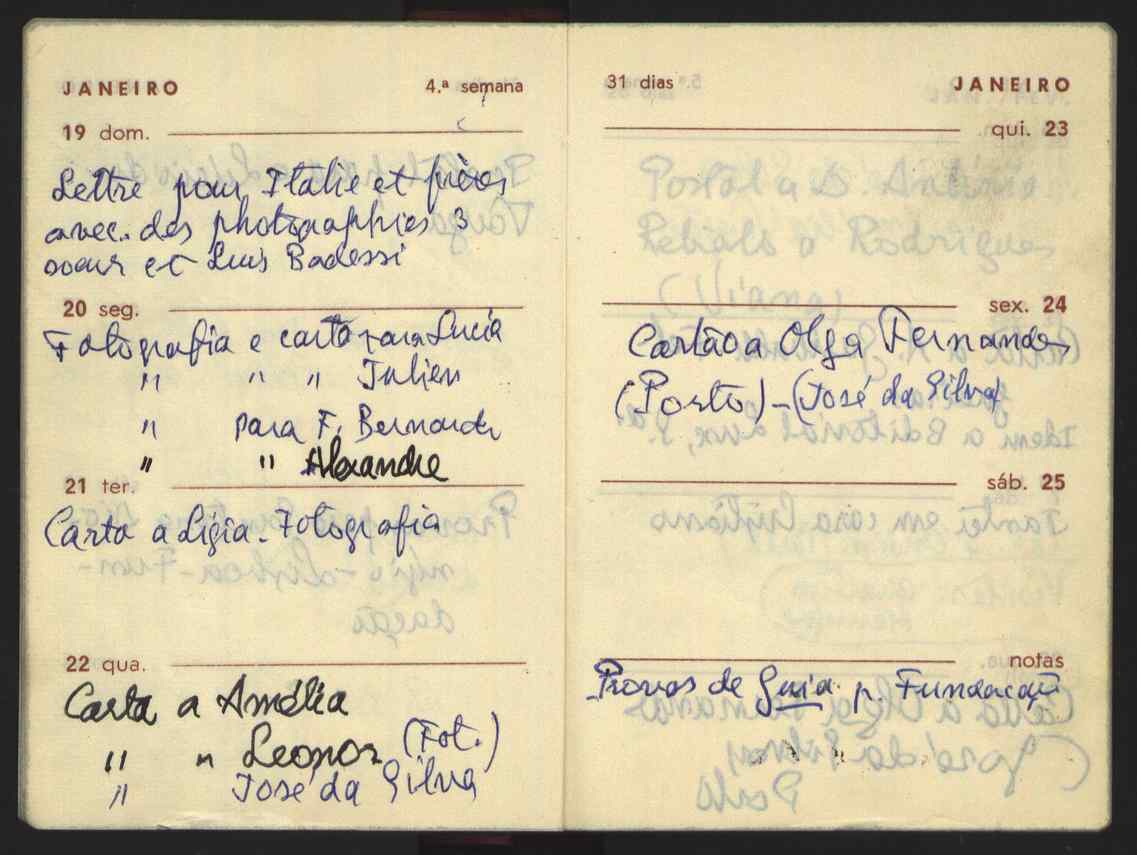 JANEIRO 4.ª semana
19 dom.
Lettre pour Italie et frères
avec des photographies 3
soeur et Luis Badessi
20 seg.
Fotografia e carta para Lucia
" " " Julien
" para F. Bernardes
" " Alexandre
21 ter.
Carta a Ligia. Fotografia
22 qua.
Carta a Amélia
" " Leonor (Fot.)
" José da Silva
31 dias JANEIRO
qui. 23
sex. 24
Cartão a Olga Fernandes
(Porto) - (José da Silva)
sáb. 25
notas
Provas de Guia p. Fundação